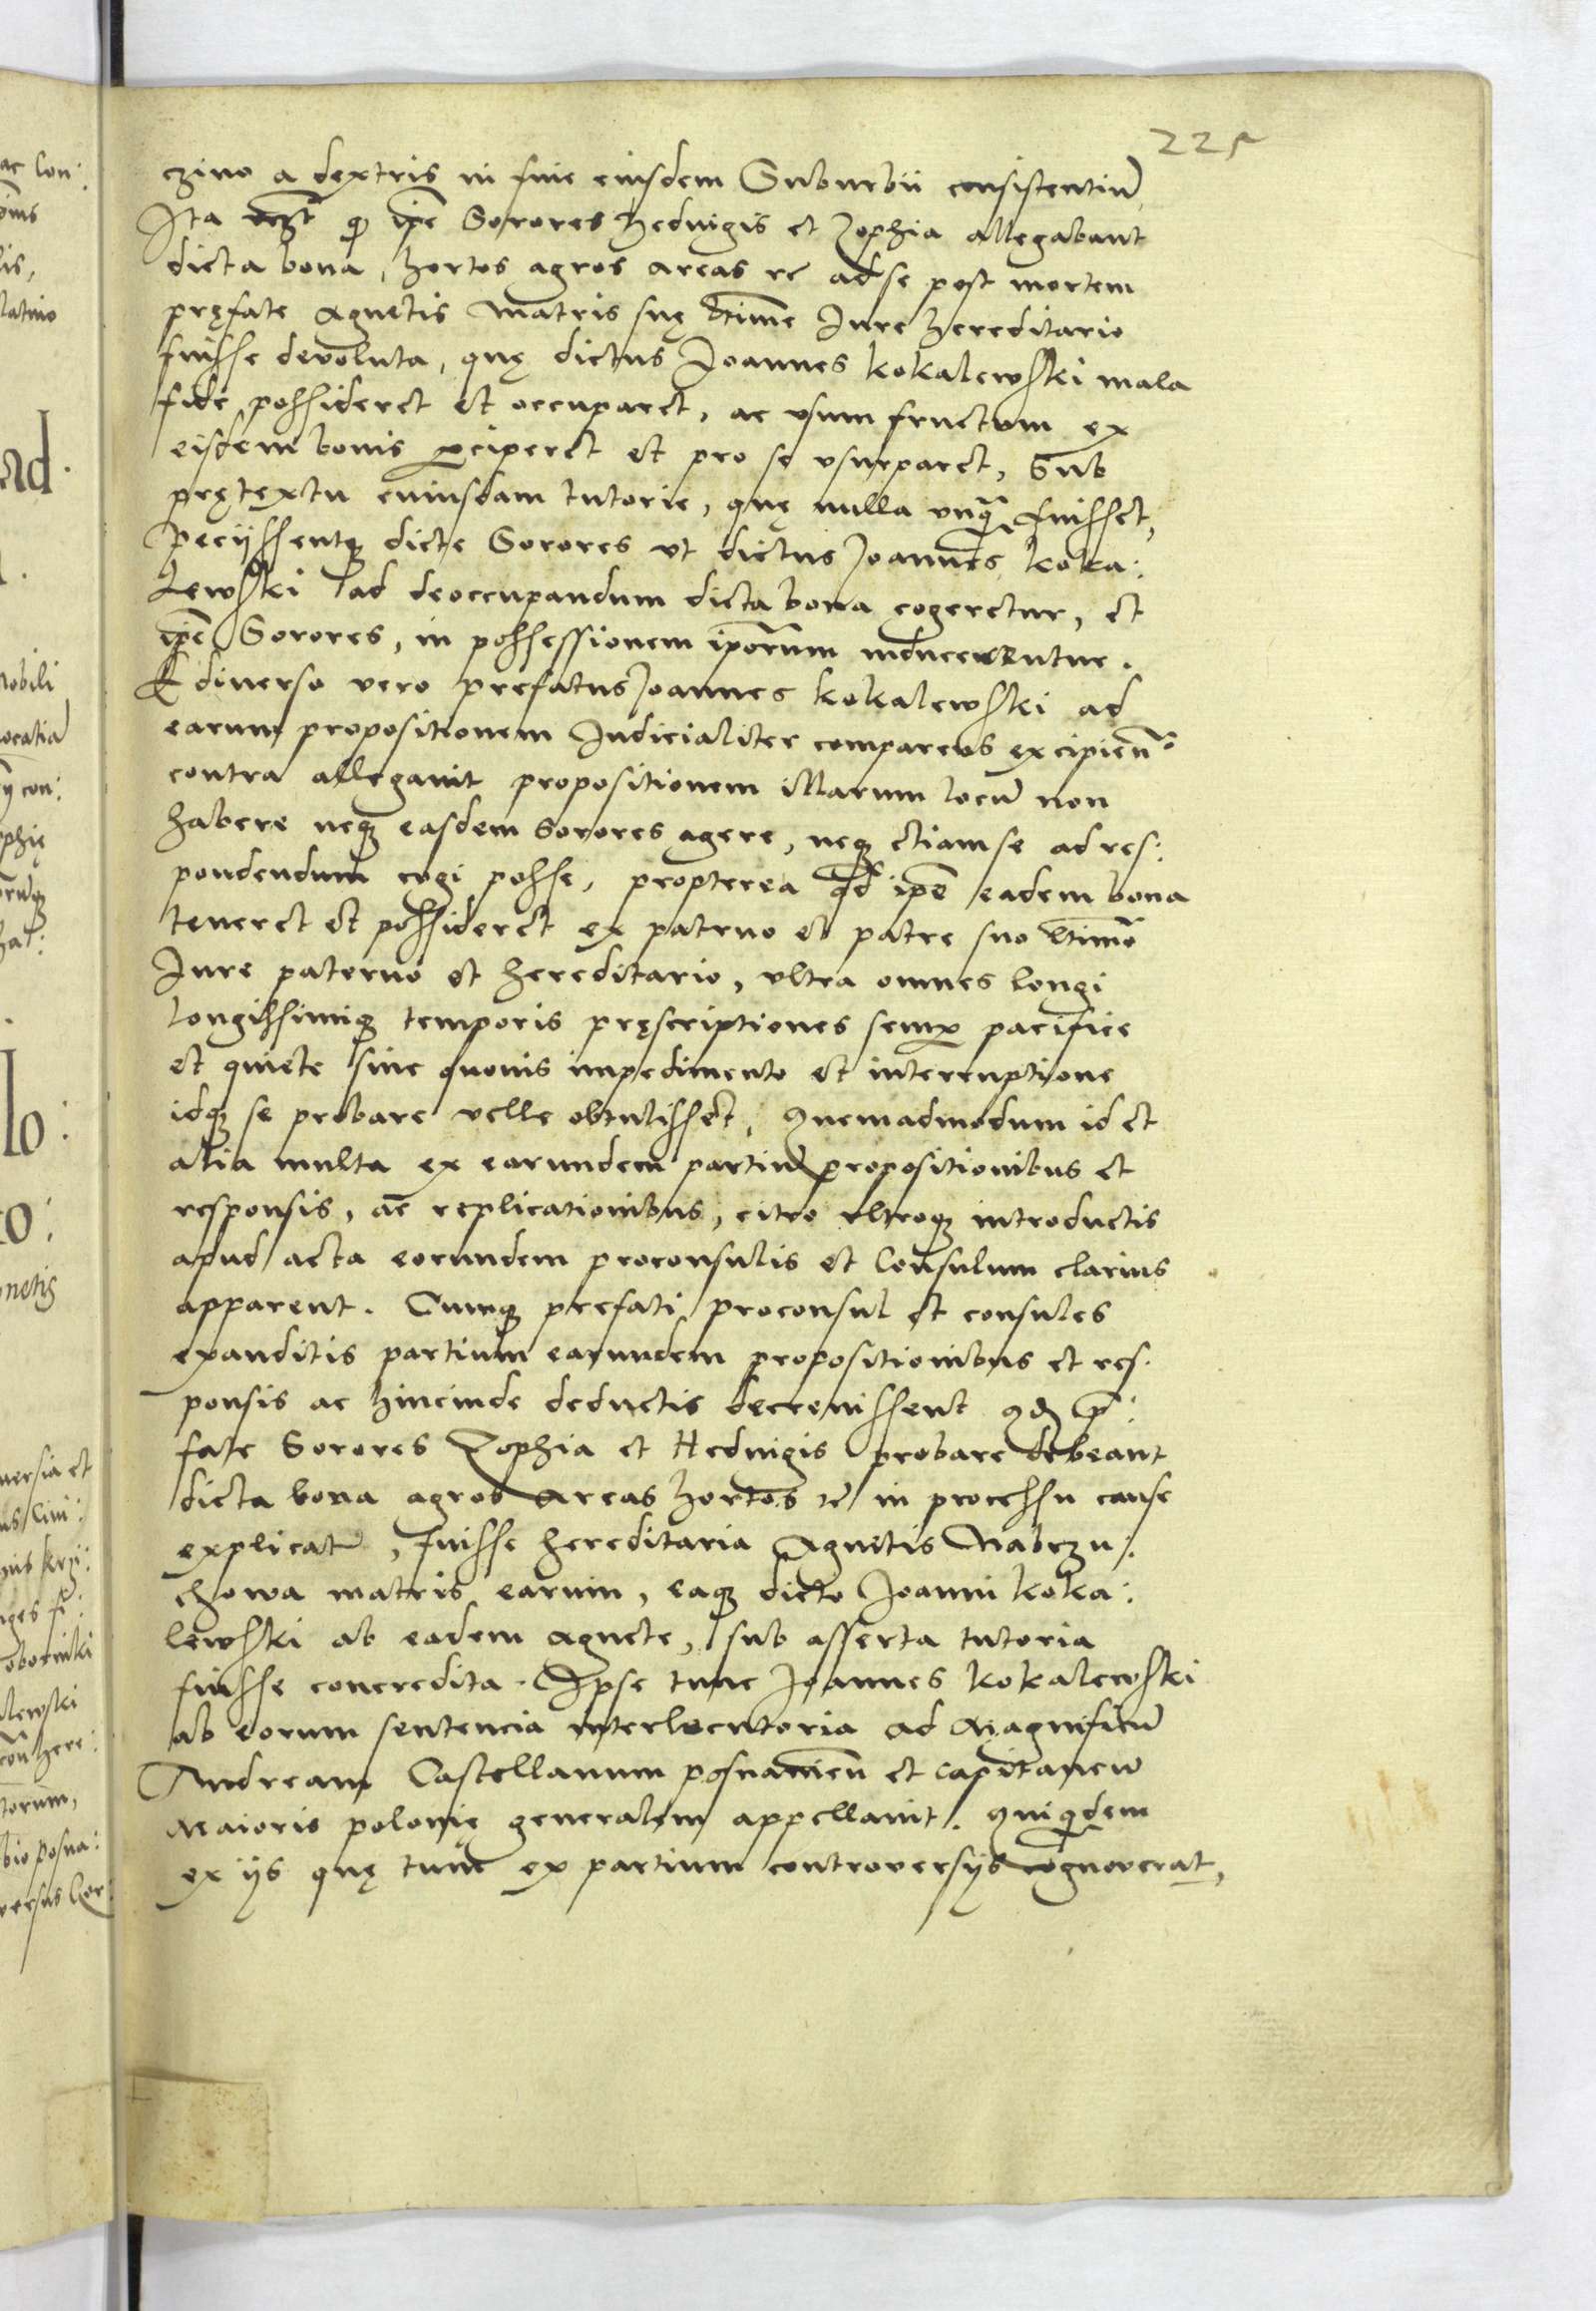 225
czino a dextris in fine eiusdem Suburbii consistentiū
Ita q̄ ip̄e Sorores Heduigis et Zophia allegabant
dicta bona, hortos agros areas rc̄ ad se post mortem
pręfate Agnetis matris suę Iure hereditario
fuisse devoluta, quę dictus Joannes kokalewski mala
fide possideret et occuparet, ac usum fructum ex
eisdem bonis ꝑciperet et pro se vsurparet, Sub
prętextu cuiusdam tutorie, quę nulla vnq̄ fuisset,
Peciissentq̨ dicte Sorores vt dictus Joannes koka:
Lewski ad deoccupandum dicta bona cogeretur, et
ip̄e Sorores, in possessionem ip̄orum inducerentur.
E diverso vero prefatus Joannes kokalewski ad
earum propositionem Iudicialiter comparens excipien̄:
contra allegauit propositionem illarum locū non
habere neq̨ easdem Sorores agere, neq̨ etiam se ad res:
pondendum cogi posse, propterea qd̄ ip̄e eadem bona
teneret et possideret ex patruo et patre suo
Iure paterno et hereditario, vltra omnes longi
longissimiq̨ temporis pręscriptiones semꝑ pacifice
et quiete sine quouis impedimento et interruptione
idq̨ se probare velle obtulisset, Quemadmodum id et
alia multa ex earundem partiū propositionibus et
responsis, ac replicationibus, citro vltroq̨ introductis
apud acta eorundem proconsulis et Consulum clarius
apparent. Cumq̨ prefati proconsul et consules
exauditis partium earundem propositionibus et res:
ponsis ac hincinde deductis decreuissent p̄:
fate Sorores Zophia et Heduigis probare debeant
dicta bona agros areas hortos rc̄ in processu cause
explicata, fuisse hereditaria Agnetis Nabrzu:
chowa matris earum, eaq̨ dicto Joanni koka:
lewski ab eadem Agnete, sub asserta tutoria
fuisse concredita. Ipse tunc Joannes kokalewski
ab eorum sentencia interlocutoria ad Magnificū
Andream Castellanum posnanien̄ et capitaneū
Maioris polonię generalem appellauit. Quiquidem
ex iis quę tunc ex partium controversijs cognoverat,